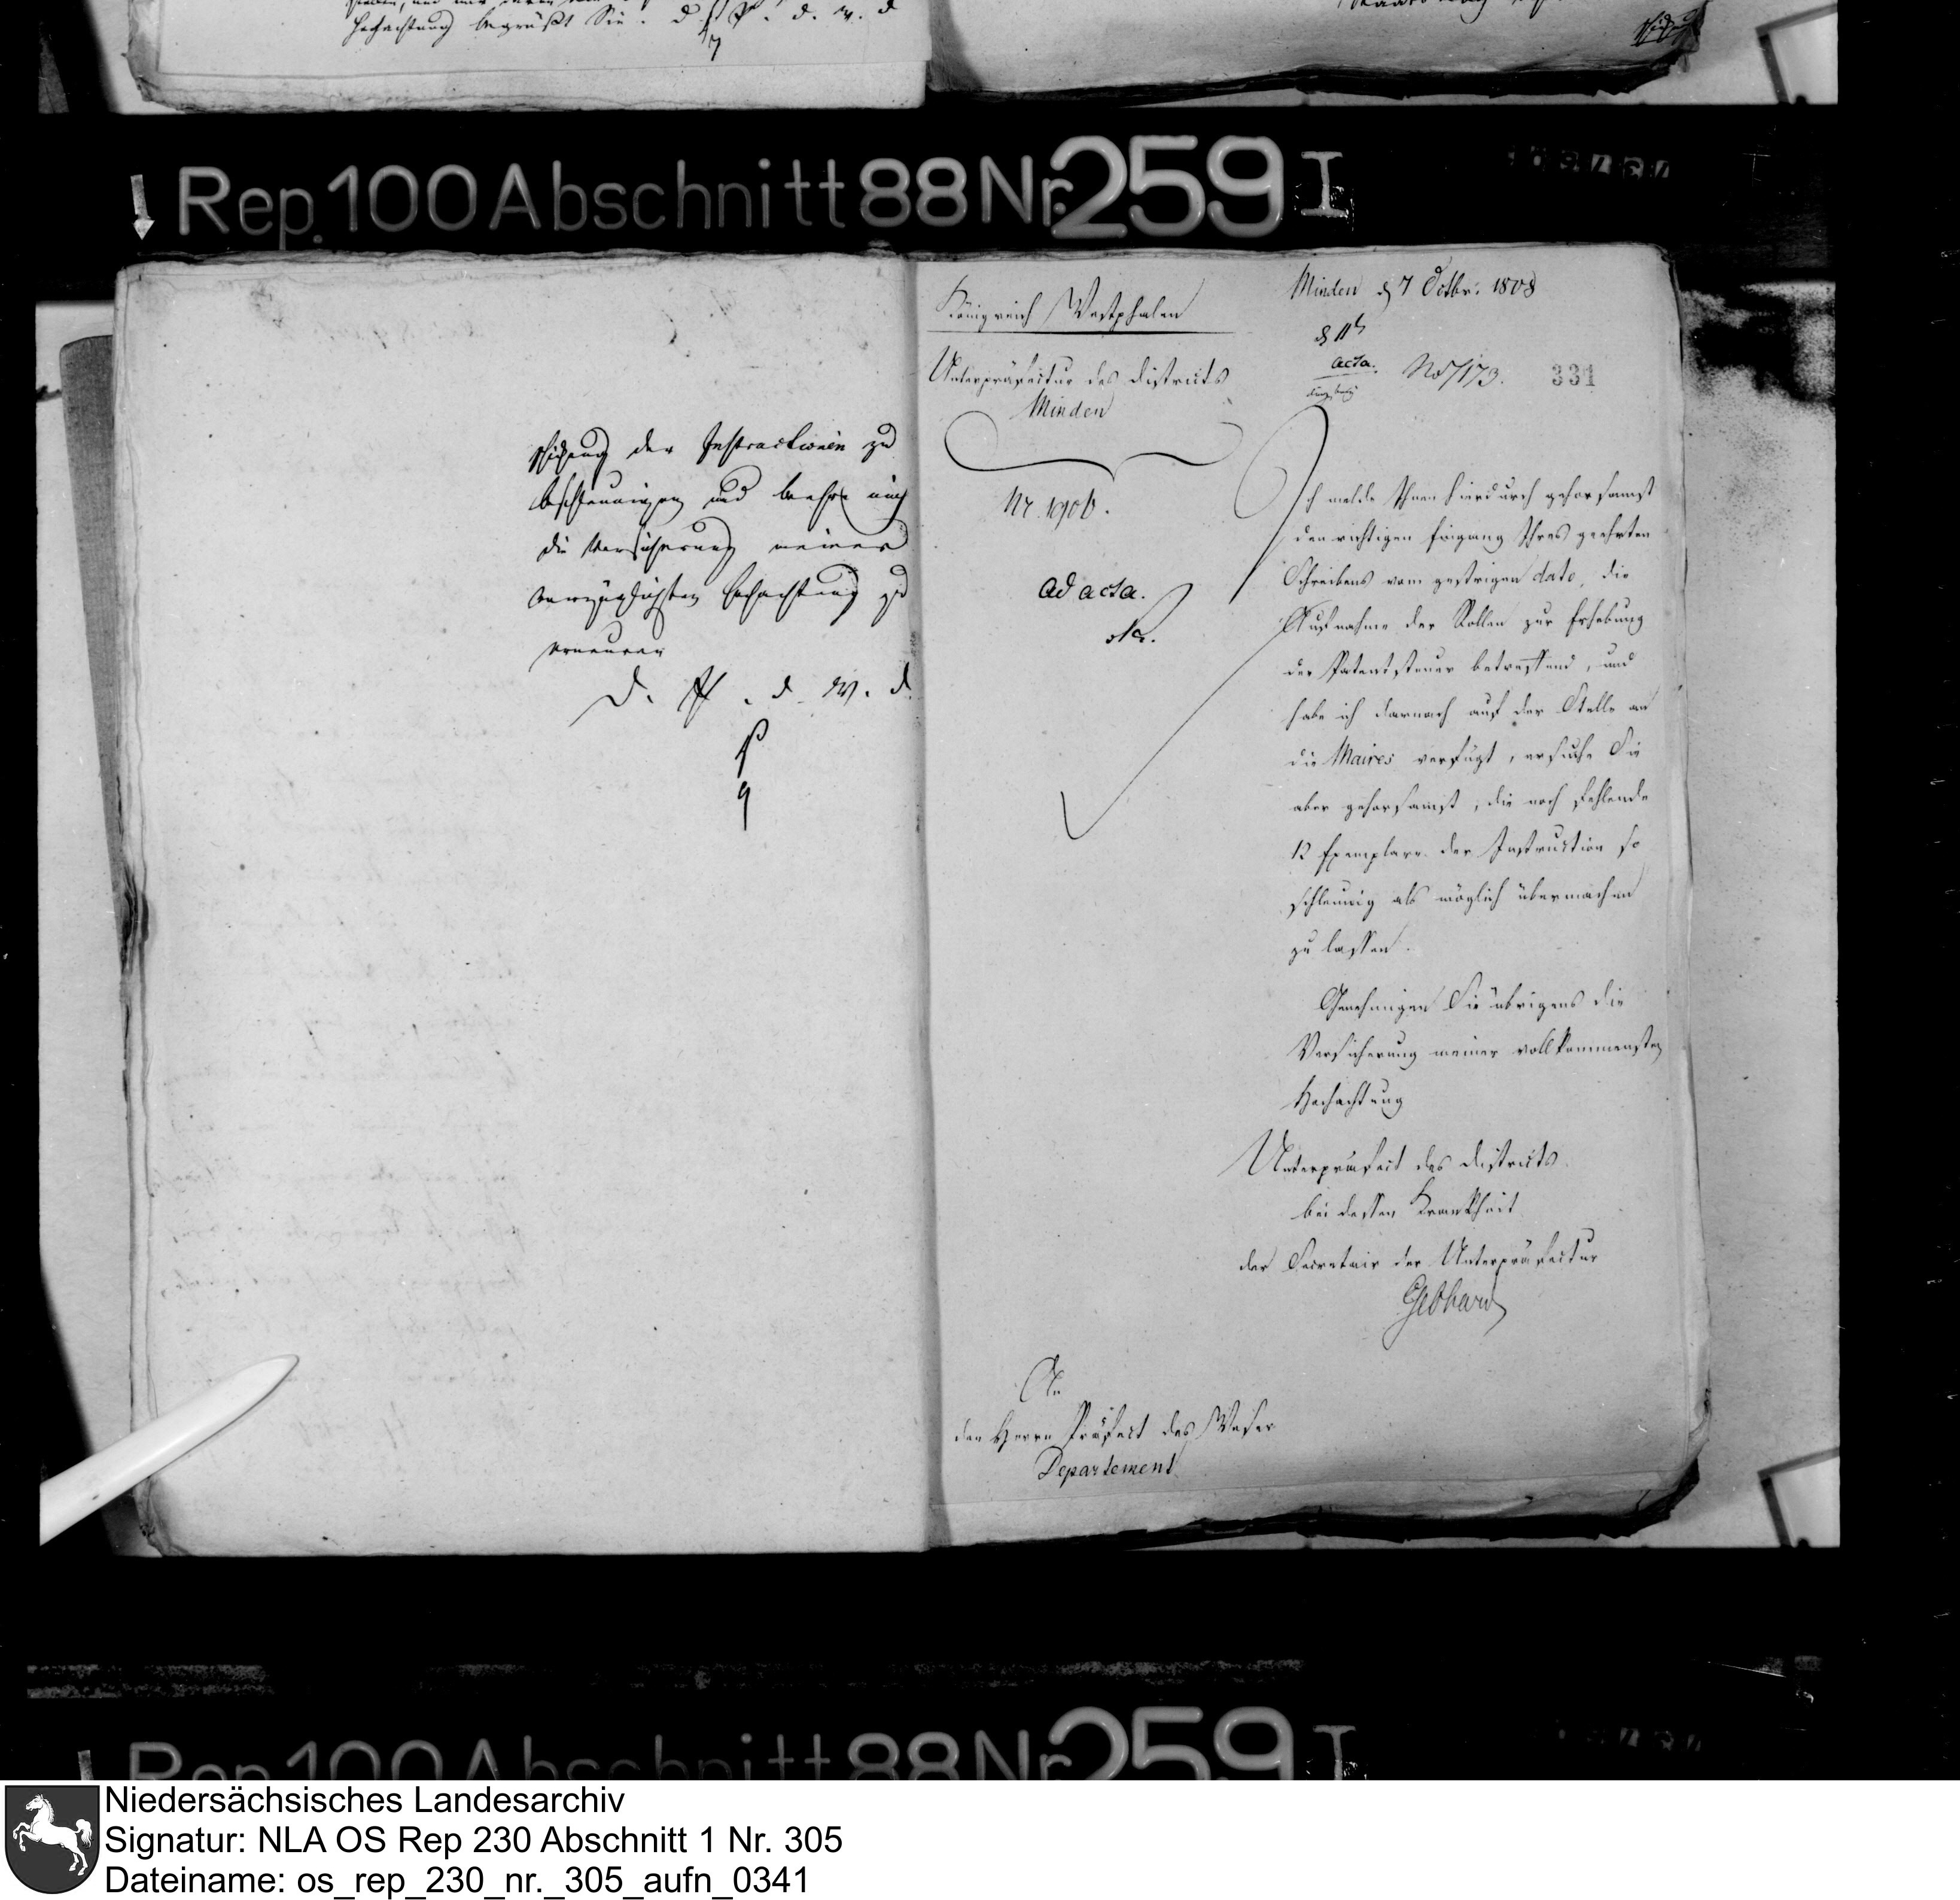 Hochachtung begrüßt Sie. D. Pf. d. W. D.
Rep. 100 Abschnitt 88 Nr. 259 I
schickung der Instructionen zu
beschleunigen und beehre mich
die Versicherung meiner
vorzüglichsten Hochachtung zu
erneuern
D. Pf. d. W. D.
Königreich Westphalen
Unterpräfectur des Districts
Minden
Nr. 1906.
ad acta.
Minden d 7 Octbr. 1808
acta.
No 7173. 331
Ich melde Ihnen hierdurch gehorsamst
den richtigen Eingang Ihres geehrten
Schreibens vom gestrigen dato, die
Aufnahme der Rollen zur Erhebung
der Patentsteuer betreffend, und
habe ich darnach auf der Stelle an
die Maires verfügt, ersuche Sie
aber gehorsamst, die noch fehlende
12 Exemplare der Instruction so
schleunig als möglich übermachen
zu lassen.
Genehmigen Sie übrigens die
Versicherung meiner vollkommensten
Hochachtung
Unterpräfect des Districts
bei dessen Krankheit
der Secretair der Unterpräfectur
Gebhard
An
den Herrn Präfect des Weser
Departement
Rep. 100 Abschnitt 88 Nr. 259 I
Niedersächsisches Landesarchiv
Signatur: NLA OS Rep 230 Abschnitt 1 Nr. 305
Dateiname: os_rep_230_nr._305_aufn_0341